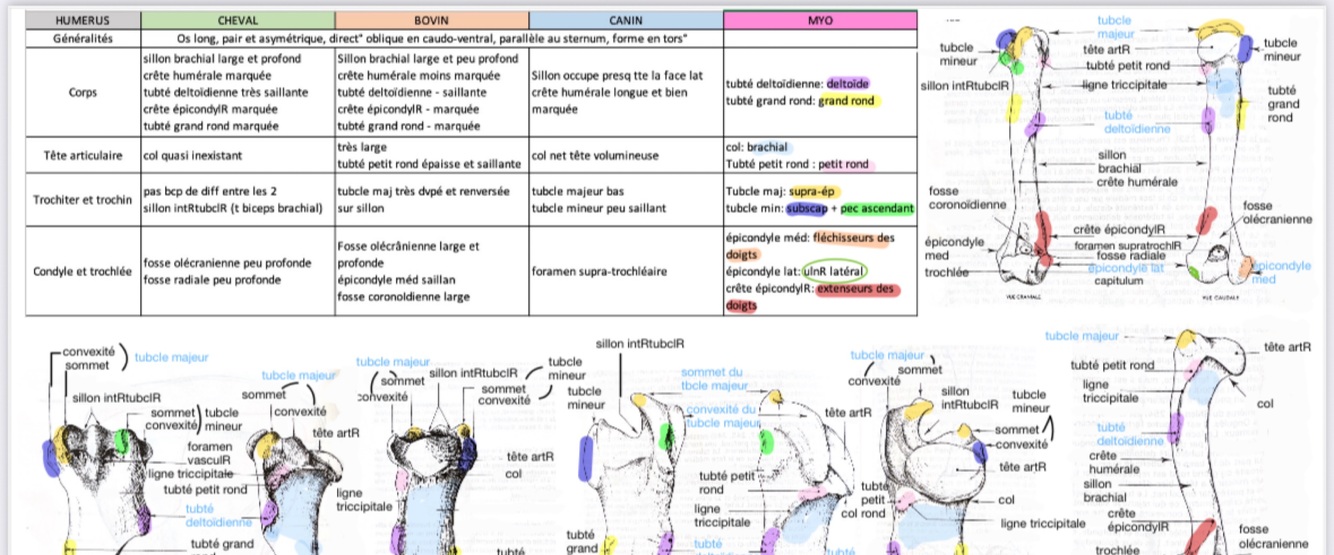 HUMERUS CHEVAL BOVIN CANIN MYO
Généralités Os long, pair et asymétrique, direct° oblique en caudo-ventral, parallèle au sternum, forme en tors°
Corps
sillon brachial large et profond
crête humérale marquée
tubté deltoïdienne très saillante
crête épicondylR marquée
tubté grand rond marquée
Sillon brachial large et peu profond
crête humérale moins marquée
tubté deltoïdienne - saillante
crête épicondylR - marquée
tubté grand rond - marquée
Sillon occupe presq tte la face lat
crête humérale longue et bien
marquée
tubté deltoïdienne: deltoïde
tubté grand rond: grand rond
Tête articulaire
col quasi inexistant
très large
tubté petit rond épaisse et saillante
col net tête volumineuse
col: brachial
Tubté petit rond : petit rond
Trochiter et trochin
pas bcp de diff entre les 2
sillon intRtubclR (t biceps brachial)
tubcle maj très dvpé et renversée
sur sillon
tubcle majeur bas
tubcle mineur peu saillant
Tubcle maj: supra-ép
tubcle min: subscap + pec ascendant
Condyle et trochlée
fosse olécranienne peu profonde
fosse radiale peu profonde
Fosse olécrânienne large et
profonde
épicondyle méd saillan
fosse coronoïdienne large
foramen supra-trochléaire
épicondyle méd: fléchisseurs des
doigts
épicondyle lat: ulnR latéral
crête épicondylR: extenseurs des
doigts
tubcle
majeur
tubcle
mineur
tête artR
tubté petit rond
tubcle
mineur
sillon intRtubclR
ligne tricipitale
tubté
grand
rond
tubté
deltoïdienne
sillon
brachial
crête humérale
fosse
coronoïdienne
fosse
olécranienne
crête épicondylR
épicondyle
med
foramen supratrochlR
fosse radiale
épicondyle lat
épicondyle
med
trochlée
capitulum
VUE CRANIALE
VUE CAUDALE
convexité
sommet
tubcle majeur
sillon intRtubclR
sommet
convexité
tubcle
mineur
foramen
vasculR
ligne triccipitale
tubté petit rond
tubté
deltoïdienne
tubté grand
tubcle majeur
sommet
convexité
tête artR
ligne
triccipitale
tubcle majeur
sommet
convexité
sillon intRtubclR
sommet
convexité
tubcle
mineur
tête artR
col
tubté
sillon intRtubclR
tubcle
mineur
tubté
grand
sommet du
tbcle majeur
convexité du
tubcle majeur
tête artR
tubté petit
rond
ligne
triccipitale
tubté
tubcle majeur
sommet
convexité
sillon
intRtubclR
tubcle
mineur
sommet
convexité
tête artR
tubté
petit
rond
col
col
ligne triccipitale
tubté
tubcle majeur
tête artR
tubté petit rond
ligne
triccipitale
col
tubté
deltoïdienne
crête
humérale
sillon
brachial
crête
épicondylR
trochlée
fosse
olécranienne